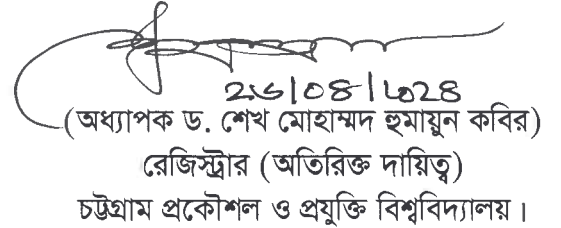 ২৬|০৪|২০২৪
(অধ্যাপক ড. শেখ মোহাম্মদ হুমায়ুন কবির)
রেজিস্ট্রার (অতিরিক্ত দায়িত্ব)
চট্টগ্রাম প্রকৌশল ও প্রযুক্তি বিশ্ববিদ্যালয়।